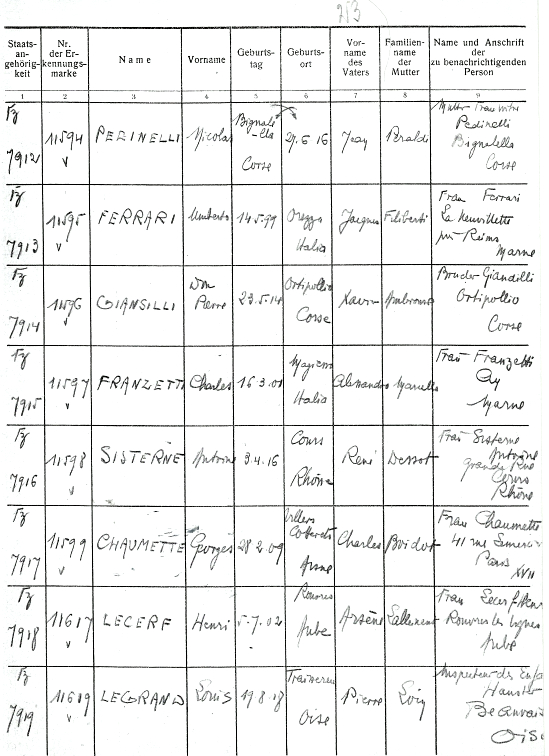 213
Staats-
an-
gehörig-
keit
Nr.
der Er-
kennungs-
marke
Name
Vorname
Geburts-
tag
Geburts-
ort
Vor-
name
des
Vaters
Familien-
name
der
Mutter
Name und Anschrift
der
zu benachrichtigenden
Person
1 2 3 4 5 6 7 8 9
Fz
7912
11594
PEDINELLI
Nicolas
Corse
27.6 16
Jean
Peraldi
Mutter Frau
Pedinelli
Bignalella
Corse
Fz
7913
11595
FERRARI
Umberto
14.5.99
Orezzo
Italia
Jacques
Filiberti
Frau Ferrari
La Neuvillette
par Reims
Marne
Fz
7914
11596
GIANSILLI
Dom
Pierre
23.5.14
Ortipollio
Corse
Xavier
Ambrosine
Bruder Giansilli
Ortipollio
Corse
Fz
7915
11597
FRANZETTI
Charles
16 3.01
Italia
Alessandro
Marcella
Frau Franzetti
Ay
Marne
Fz
7916
11598
SISTERNE
Antoine
3.4.16
Cours
Rhône
René
Dessot
Frau Sisterne
Antoine
grande Rue
Cours
Rhône
Fz
7917
11599
CHAUMETTE
Georges
28 2.09
Villers
Cotterets
Aisne
Charles
Boidot
Frau Chaumette
41 rue
Paris
XVII
Fz
7918
11617
LECERF
Henri
5-7.02
Rouvres
Aube
Arsène
Lallement
Frau Lecerf Henri
Rouvres les Vignes
Aube
Fz
7919
11619
LEGRAND
Louis
19 8.18
Oise
Pierre
Inspecteur des Enfa
Beauvais
Oise